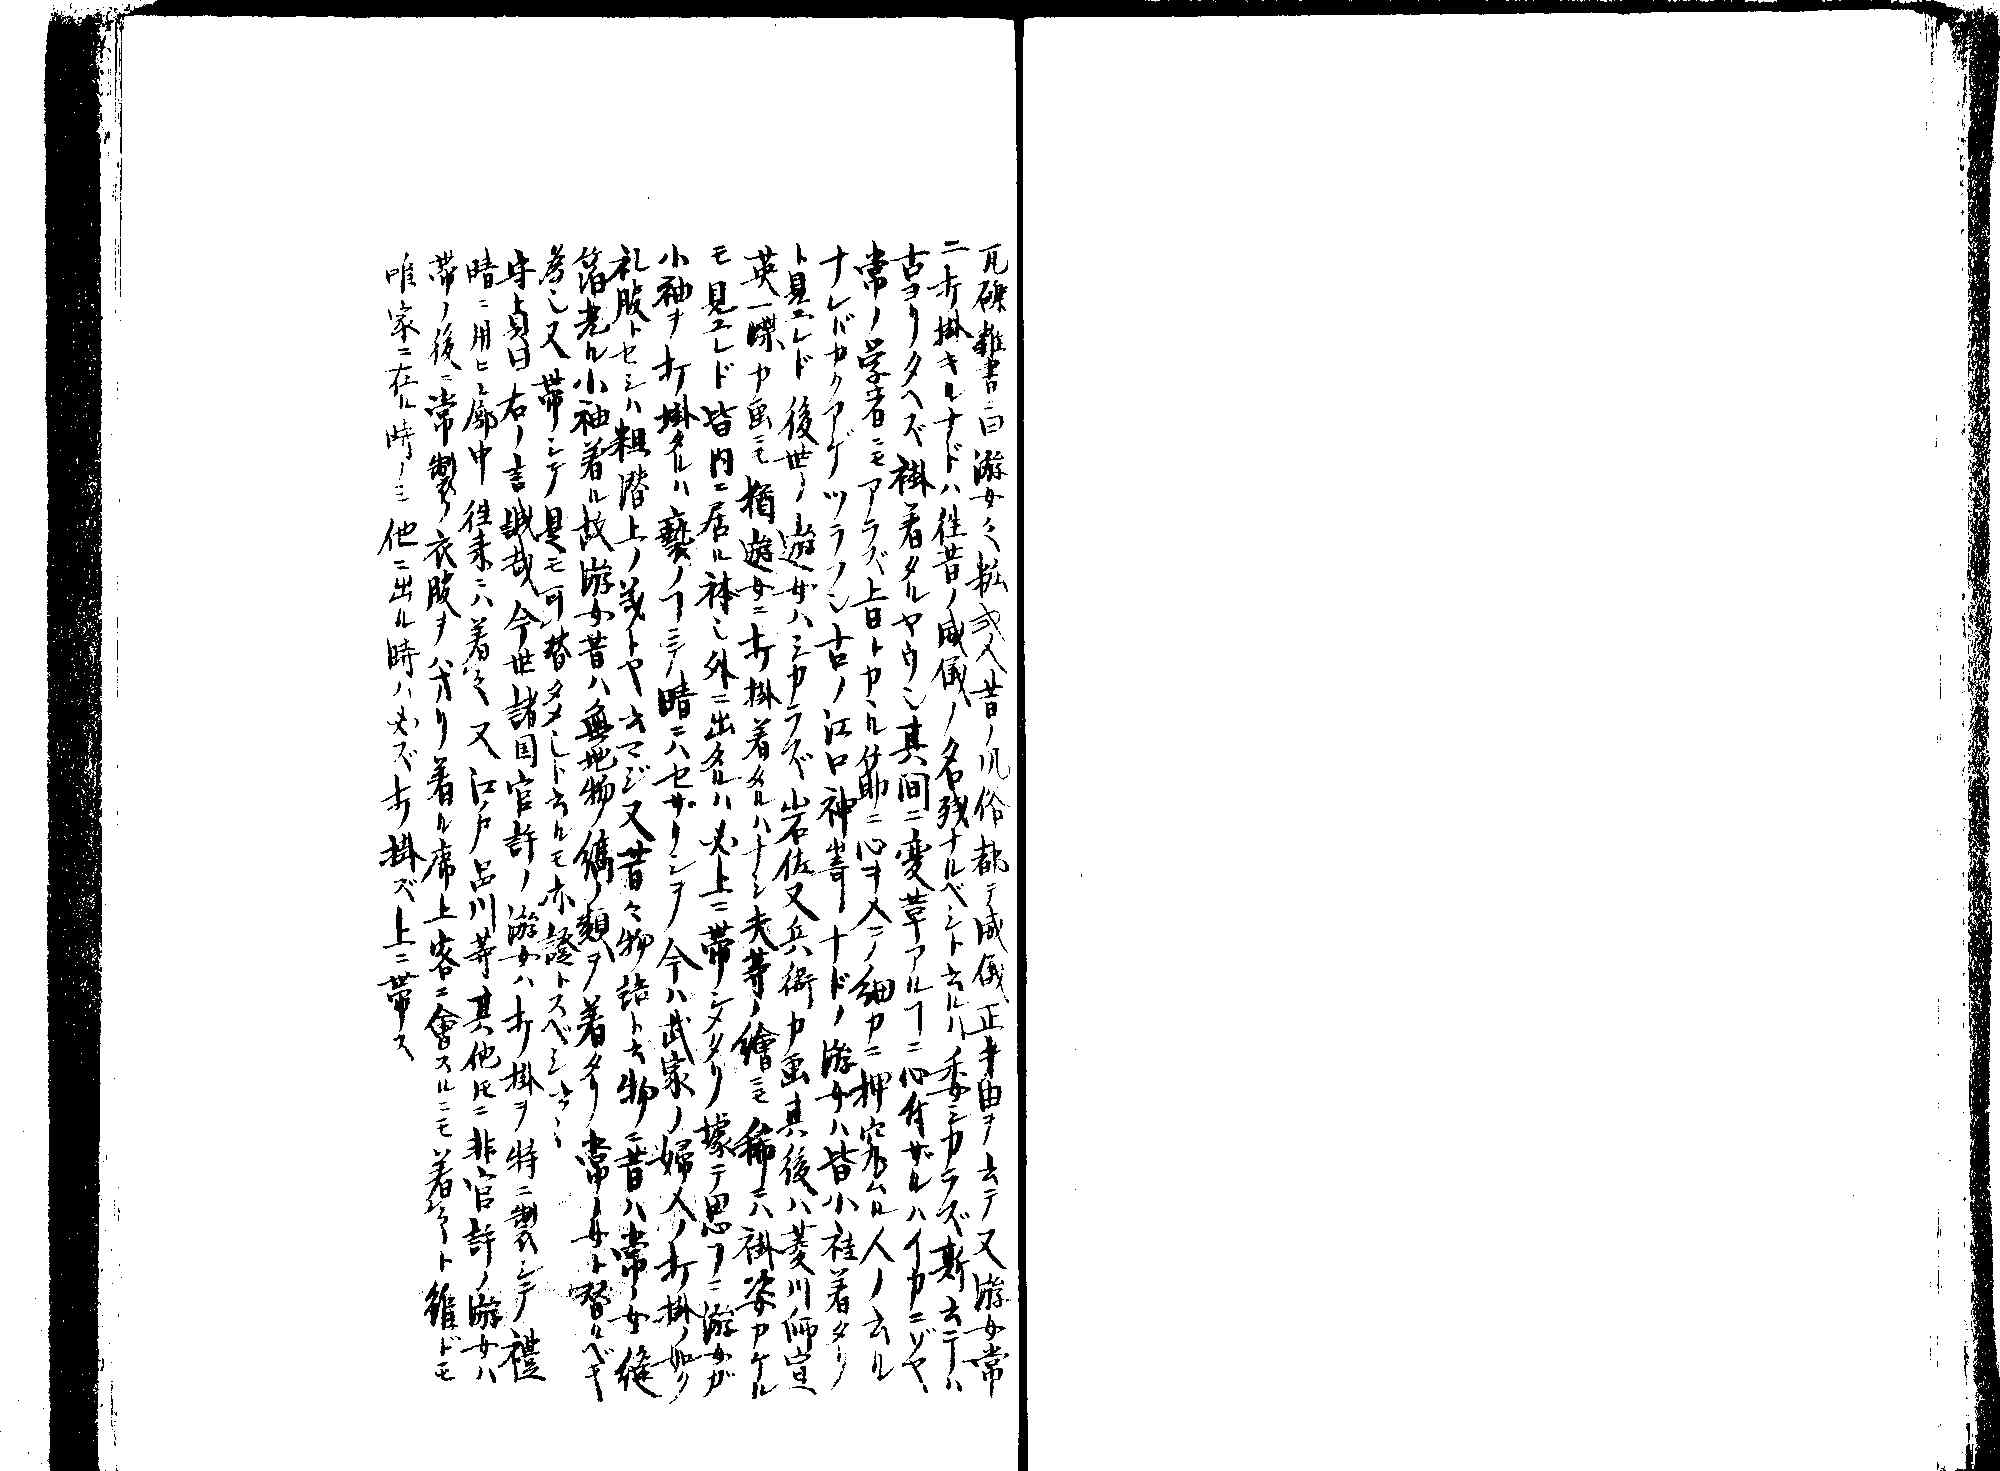 瓦礫雑書ニ曰游女之粧或人昔ノ風俗都テ威儀正キ由ヲ云テ又游女常
ニ打掛キルナドハ往昔ノ威儀ノ名残ナルベシト云ルハ委シカラズ斯云テハ
古ヨリタヘズ褂着タルヤウ也其間ニ変革アルヿニ心付ザルハイカニゾヤ
常ノ学者ニモアラズ上日トカヽル筋ニ心ヲ入テ細カニ押究ムル人ノ云ル
ナレバカクアゲツラフ也古ノ江口神崎ナドノ游女ハ皆小袿着タリ
ト見エレド後世ノ遊女ハシカラズ岩佐又兵衛カ画其後ハ菱川師宣
英一蝶カ画ニモ猶遊女ニ打掛着タルハナシ夫等ノ繪ニモ稀ニハ褂姿アケル
モ見エレド皆内ニ居ル体也外ニ出タルハ必上ニ帯シメタリ據テ思フニ游女ガ
小袖ヲ打掛タルハ褻ノヿニテ晴ニハセザリシヲ今ハ武家ノ婦人ノ打掛ノ如ク
礼服トセシハ粗潜上ノ義トヤ云マジ又昔々物語ト云物ニ昔ハ常ノ女縫
箔光ル小袖着ル故游女昔ハ無地物縞ノ類ヲ着タリ常ノ女ト替ルベキ
為也又帯シテ是モ可替タメ也ト云ルモ亦證トスベシ云々
守貞曰右ノ言誠哉今世諸国官許ノ游女ハ打掛ヲ特ニ製シテ禮
晴ニ用ヒ廓中往来ニハ着之又江戸品川等其他凡ニ非官許ノ游女ハ
帯ノ後ニ常製ノ衣服ヲハオリ着ル席上客ニ會スルニモ着之ト雖ドモ
唯家ニ在ル時ノミ他ニ出ル時ハ必ズ打掛ズ上ニ帯ス